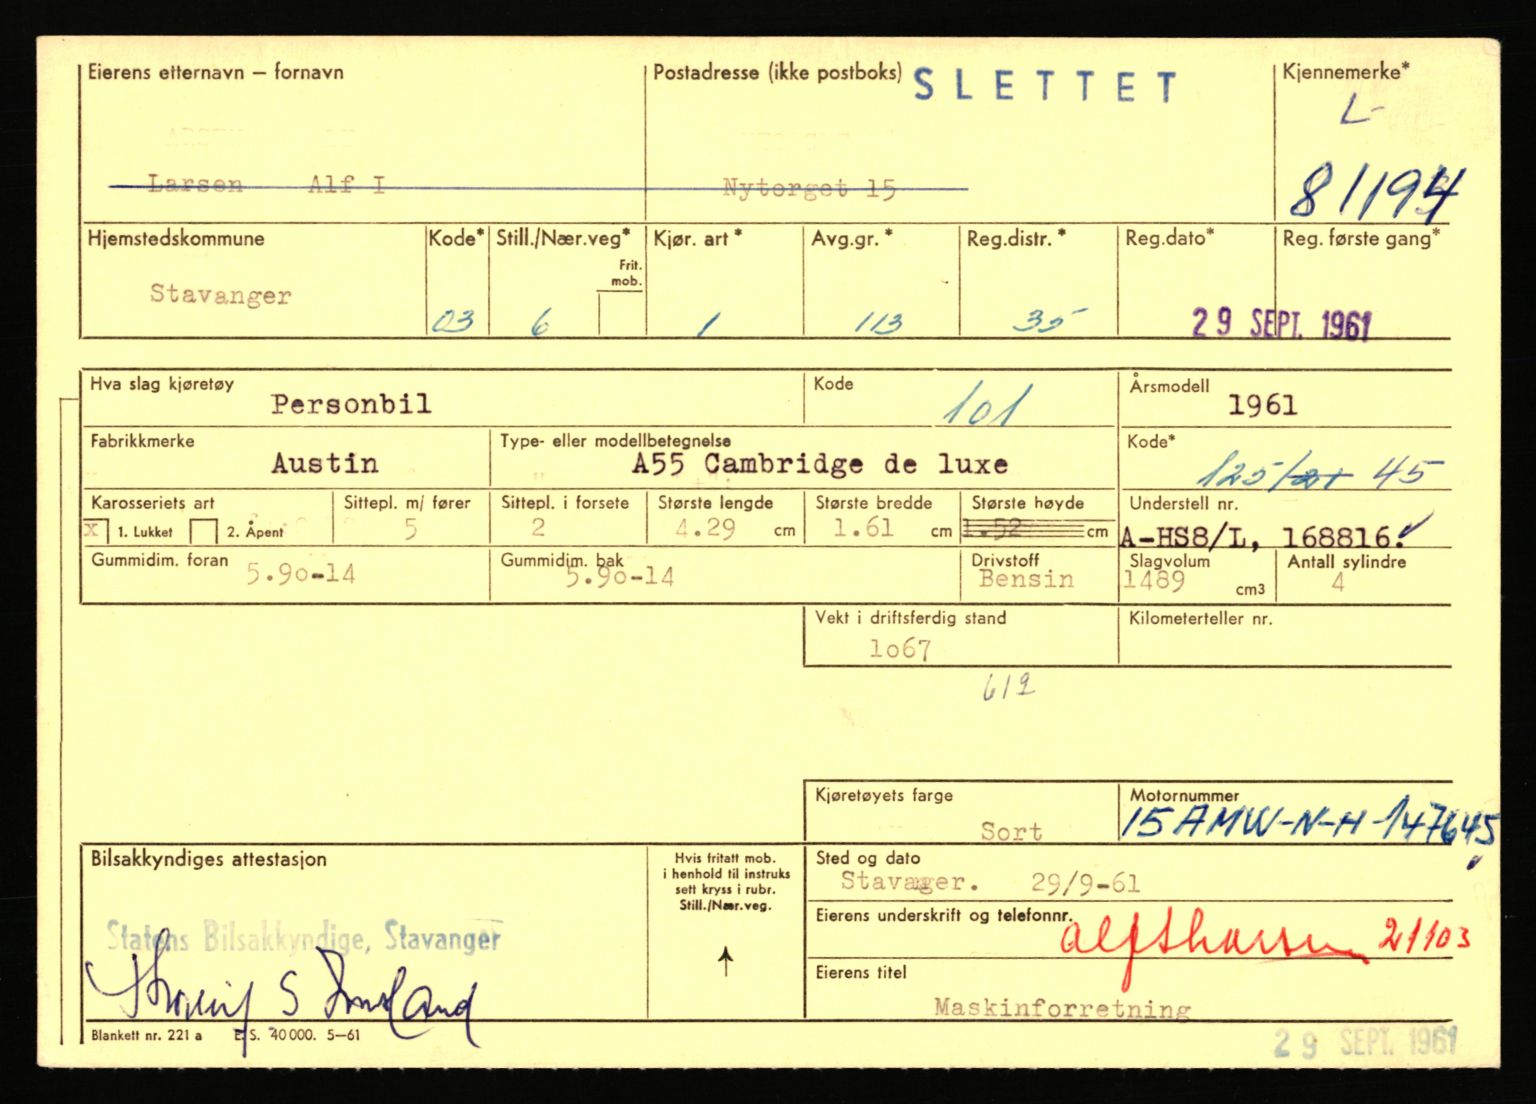 Eierens etternavn – fornavn
Postadresse (ikke postboks)
SLETTET
Kjennemerke*
L-
Larsen Alf I
Nytorget 15
81194
Hjemstedskommune
Kode*
Still./Nær.veg*
Frit. mob.
Kjør. art *
Avg.gr. *
Reg.distr. *
Reg.dato*
Reg. første gang*
Stavanger
03
6
1
113
35
29 SEPT. 1961
Hva slag kjøretøy
Personbil
Kode
101
Årsmodell
1961
Fabrikkmerke
Austin
Type- eller modellbetegnelse
A55 Cambridge de luxe
Kode*
125/21 45
Karosseriets art
x 1. Lukket 2. Åpent
Sittepl. m/ fører
5
Sittepl. i forsete
2
Største lengde
4.29 cm
Største bredde
1.61 cm
Største høyde
1.52 cm
Understell nr.
A-HS8/L, 168816.
Gummidim. foran
5.9o-14
Gummidim. bak
5.9o-14
Drivstoff
Bensin
Slagvolum
1489 cm3
Antall sylindre
4
Vekt i driftsferdig stand
1o67
Kilometerteller nr.
612
Kjøretøyets farge
Sort
Motornummer
15AMW-N-H-147645
Bilsakkyndiges attestasjon
Statens Bilsakkyndige, Stavanger
Hvis fritatt mob.
i henhold til instruks
sett kryss i rubr.
Still./Nær.veg.
Sted og dato
Stavager. 29/9-61
Eierens underskrift og telefonnr.
21103
Eierens titel
Maskinforretning
Blankett nr. 221 a E. S. 40 000. 5–61
29 SEPT. 1961